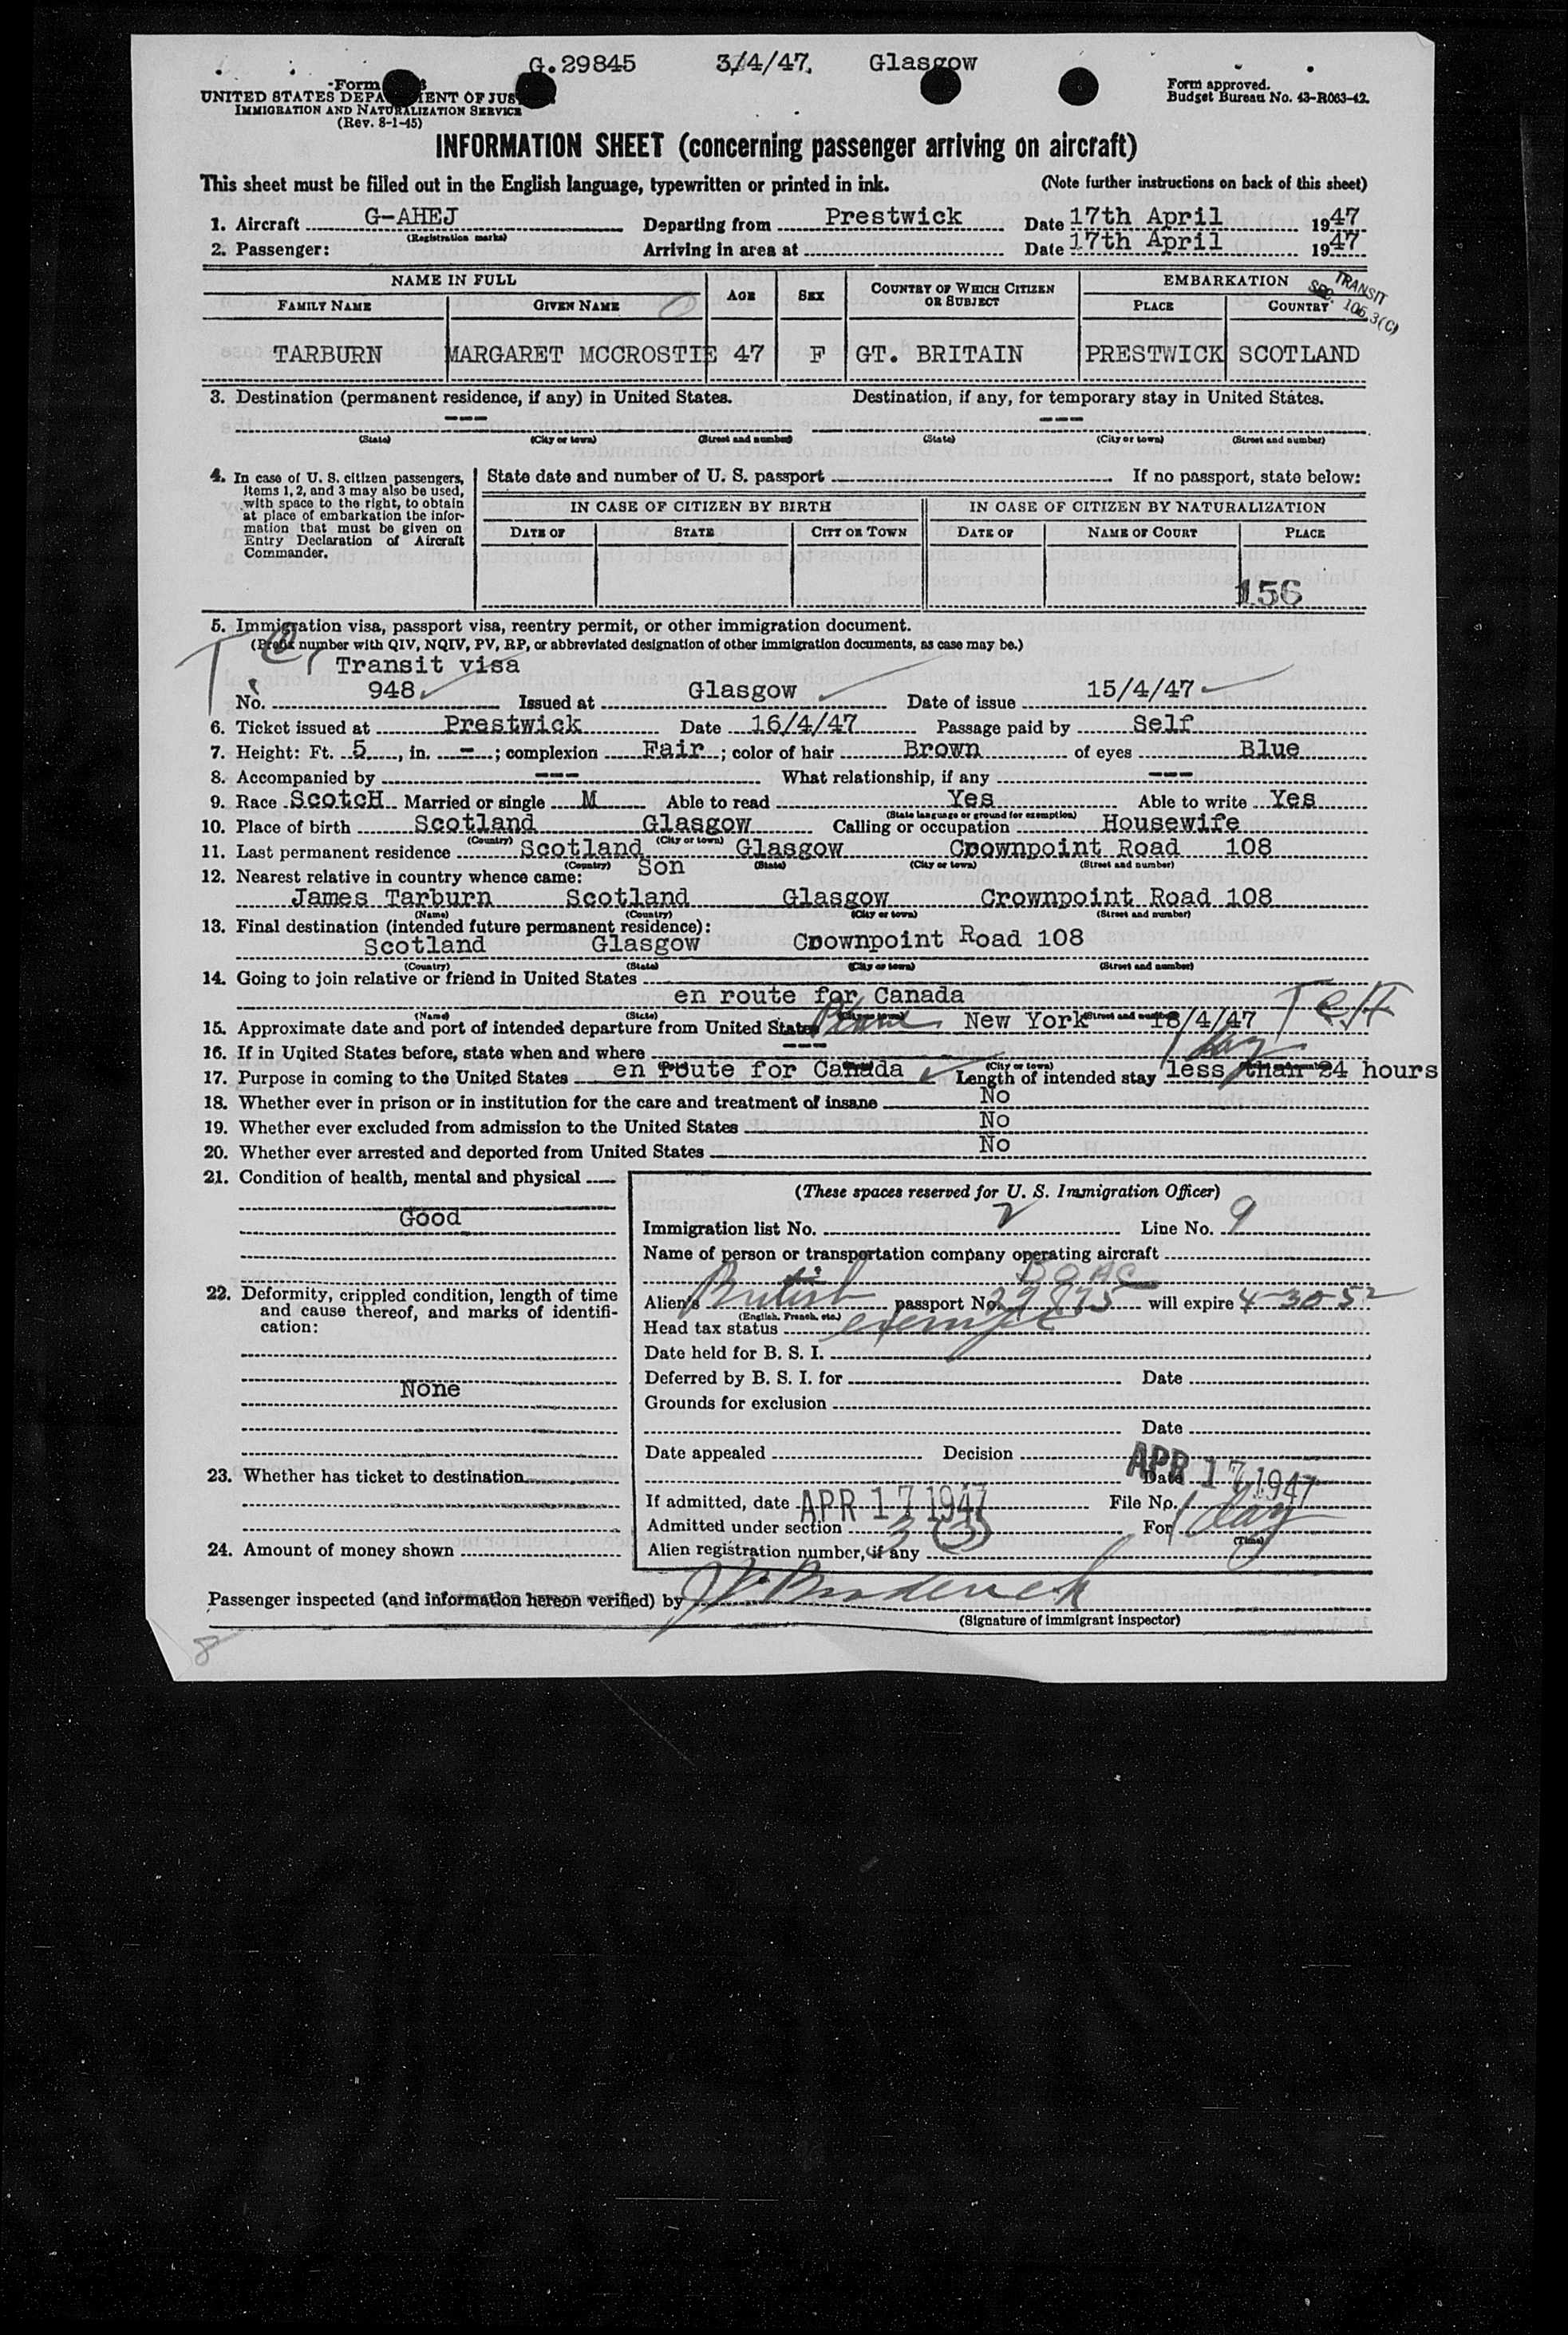 G.29845 3/4/47. Glasgow
Form
UNITED STATES DEPARTMENT OF JUSTICE
IMMIGRATION AND NATURALIZATION SERVICE
(Rev. 8-1-45)
Form approved.
Budget Bureau No. 43-R063-42.
INFORMATION SHEET (concerning passenger arriving on aircraft)
This sheet must be filled out in the English language, typewritten or printed in ink. (Note further instructions on back of this sheet)
1. Aircraft G-AHEJ Departing from Prestwick Date 17th April 1947
(Registration marks)
2. Passenger: Arriving in area at Date 17th April 1947
NAME IN FULL AGE SEX COUNTRY OF WHICH CITIZEN OR SUBJECT EMBARKATION
TRANSIT
SEC. 106.3(C)
FAMILY NAME GIVEN NAME PLACE COUNTRY
TARBURN MARGARET MCCROSTIE 47 F GT. BRITAIN PRESTWICK SCOTLAND
3. Destination (permanent residence, if any) in United States. Destination, if any, for temporary stay in United States.
--- ---
(State) (City or town) (Street and number) (State) (City or town) (Street and number)
4. In case of U. S. citizen passengers, items 1, 2, and 3 may also be used, with space to the right, to obtain at place of embarkation the information that must be given on Entry Declaration of Aircraft Commander.
State date and number of U. S. passport If no passport, state below:
IN CASE OF CITIZEN BY BIRTH IN CASE OF CITIZEN BY NATURALIZATION
DATE OF STATE CITY OR TOWN DATE OF NAME OF COURT PLACE
156
5. Immigration visa, passport visa, reentry permit, or other immigration document.
(Prefix number with QIV, NQIV, PV, RP, or abbreviated designation of other immigration documents, as case may be.)
Transit visa
No. 948 Issued at Glasgow Date of issue 15/4/47
6. Ticket issued at Prestwick Date 16/4/47 Passage paid by Self
7. Height: Ft. 5, in. -; complexion Fair; color of hair Brown of eyes Blue
8. Accompanied by --- What relationship, if any ---
9. Race ScotcH Married or single M Able to read Yes Able to write Yes
(State language or ground for exemption)
10. Place of birth Scotland Glasgow Calling or occupation Housewife
(Country) (City or town)
11. Last permanent residence Scotland Glasgow Crownpoint Road 108
(Country) (State) (City or town) (Street and number)
12. Nearest relative in country whence came: Son
James Tarburn Scotland Glasgow Crownpoint Road 108
(Name) (Country) (City or town) (Street and number)
13. Final destination (intended future permanent residence):
Scotland Glasgow Crownpoint Road 108
(Country) (State) (City or town) (Street and number)
14. Going to join relative or friend in United States
en route for Canada
(Name) (State) (City or town) (Street and number)
15. Approximate date and port of intended departure from United States Plane New York 18/4/47
16. If in United States before, state when and where ---
1 day
(City or town)
17. Purpose in coming to the United States en route for Canada Length of intended stay less than 24 hours
18. Whether ever in prison or in institution for the care and treatment of insane No
19. Whether ever excluded from admission to the United States No
20. Whether ever arrested and deported from United States No
21. Condition of health, mental and physical
Good
22. Deformity, crippled condition, length of time and cause thereof, and marks of identification:
None
23. Whether has ticket to destination
24. Amount of money shown
(These spaces reserved for U. S. Immigration Officer)
Immigration list No. 2 Line No. 9
Name of person or transportation company operating aircraft
BOAC
Alien's British passport No. 29845 will expire 4-30-52
(English, French, etc.)
Head tax status exempt
Date held for B. S. I.
Deferred by B. S. I. for Date
Grounds for exclusion
Date
Date appealed Decision
Date APR 17 1947
If admitted, date APR 17 1947 File No.
Admitted under section 3 (3) For 1 day
(Time)
Alien registration number, if any
Passenger inspected (and information hereon verified) by
(Signature of immigrant inspector)
8